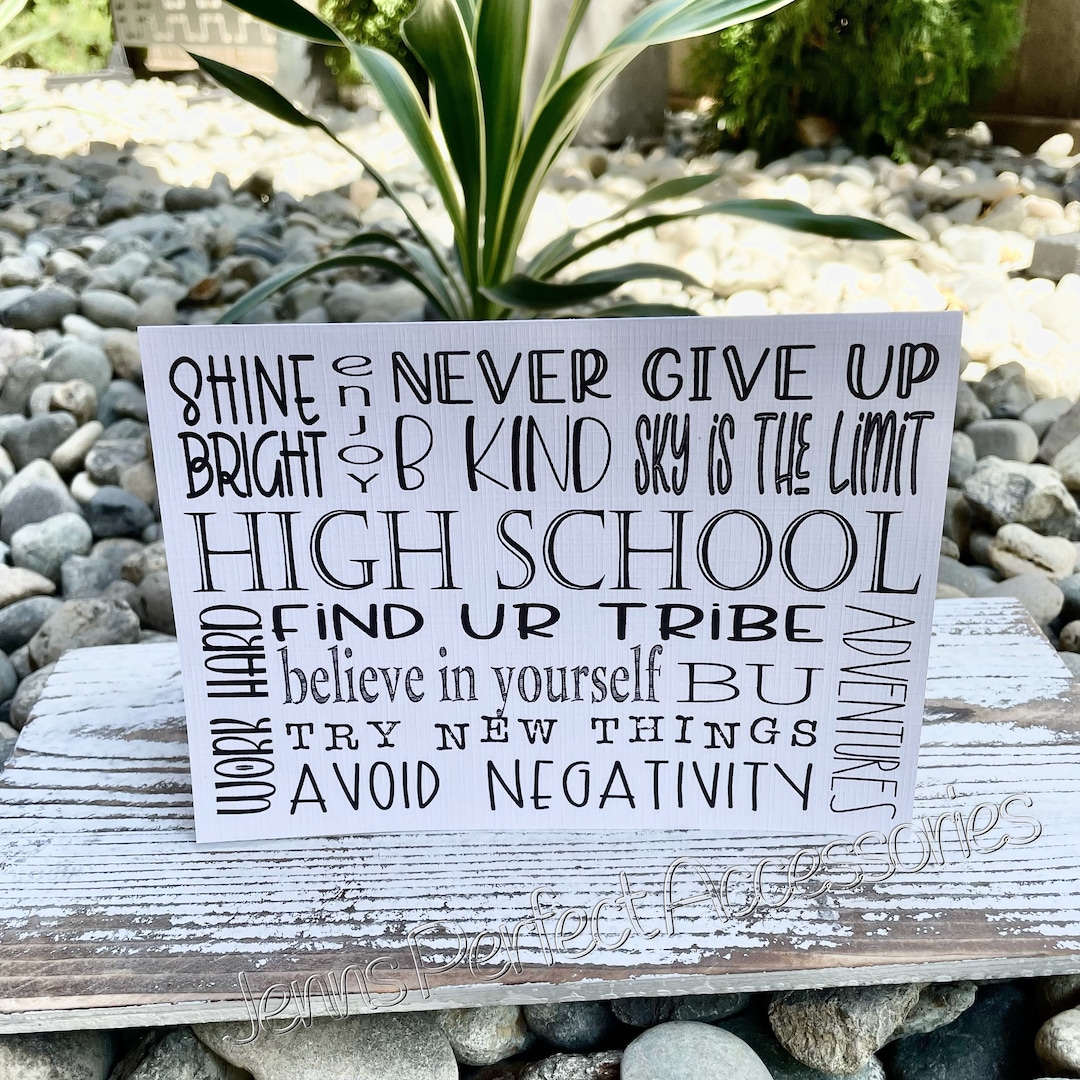 SHINE
BRIGHT
enJOY
NEVER GIVE UP
B KIND
SKY iS THE LiMiT
HIGH SCHOOL
WORK HARD
FiND UR TRiBE
believe in yourself BU
TRY NEW THINGS
AVOID NEGATIVITY
ADVENTURES
Jenns Perfect Accessories